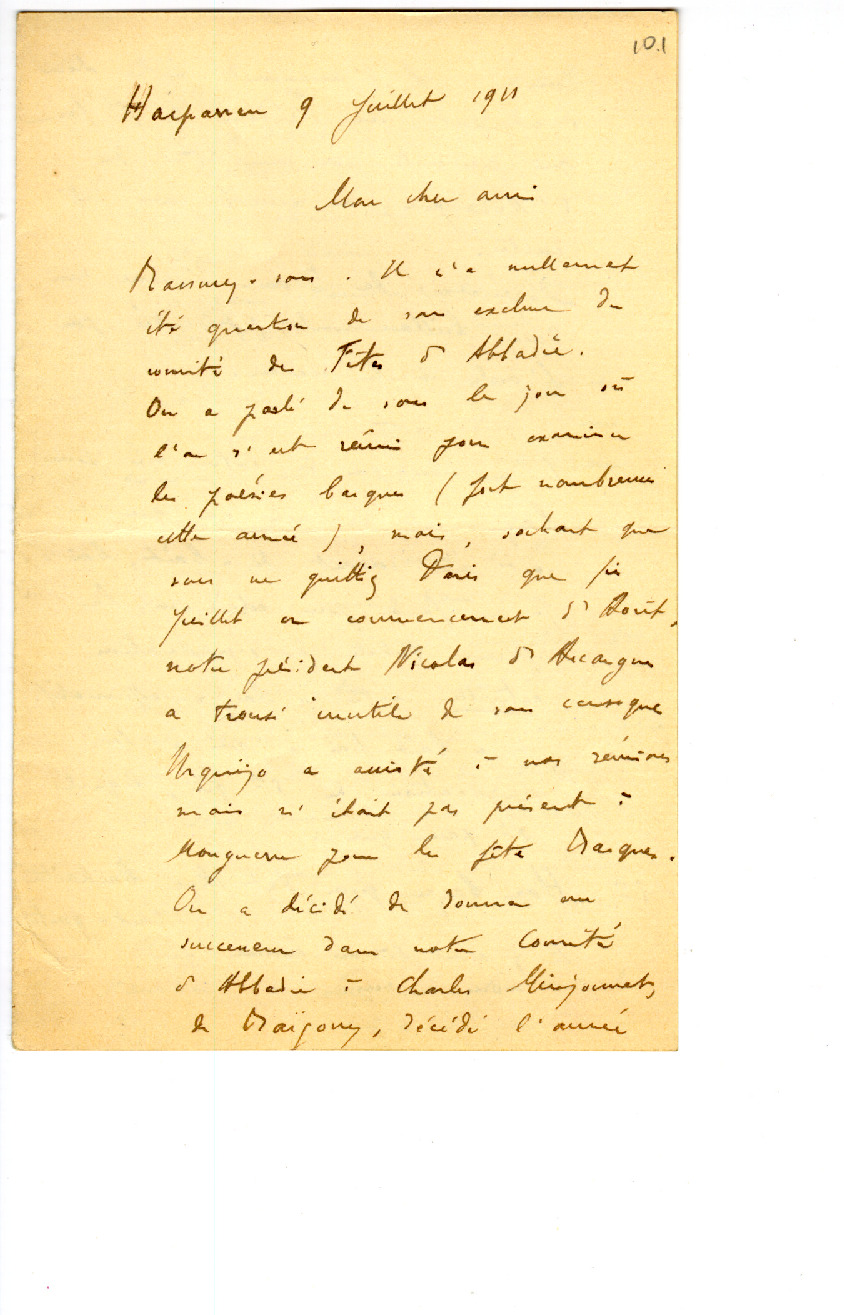 101
Hasparren 9 Juillet 1911
Mon cher ami
Rassurez-vous. Il n'a nullement
été question de vous exclure du
comité des Fêtes d'Abbadie.
On a parlé de vous le jour où
l'on s'est réuni pour examiner
les poésies basques (fort nombreuses
cette année), mais, sachant que
vous ne quittiez Paris que fin
Juillet ou commencement d'Août,
notre président Nicolas d'Arcangues
a trouvé inutile de vous
Urquijo a assisté à nos réunions
mais n'était pas présent à
Mouguerre pour les fêtes Basques.
On a décidé de donner un
successeur dans notre Comité
d'Abbadie à Charles
de Baïgorry, décédé l'année